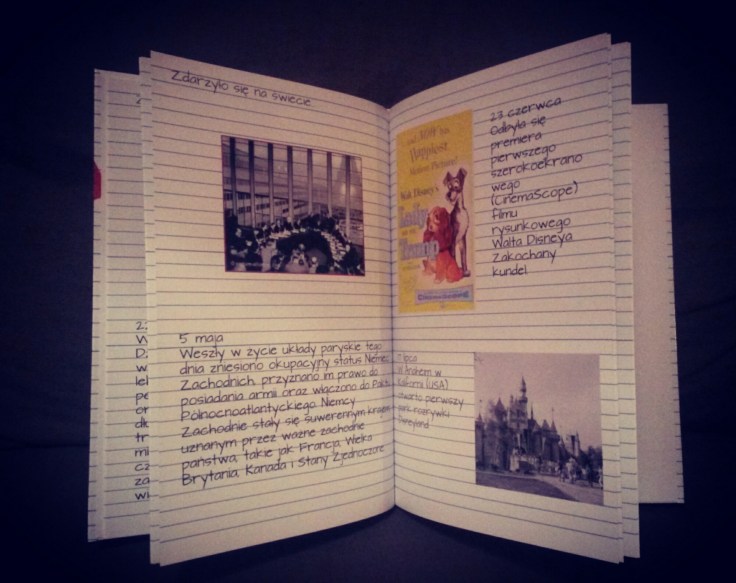 Zdarzyło się na świecie
5 maja
Weszły w życie układy paryskie tego
dnia zniesiono okupacyjny status Niemiec
Zachodnich, przyznano im prawo do
posiadania armii oraz włączono do Paktu
Północnoatlantyckiego. Niemcy
Zachodnie stały się suwerennym krajem
uznanym przez ważne zachodnie
państwa, takie jak Francja, Wielka
Brytania, Kanada i Stany Zjednoczone
and HIS
Happiest
Motion Picture!
Walt Disney's
Lady
and the
Tramp
CinemaScope
23 czerwca
Odbyła się
premiera
pierwszego
szerokoekrano
wego
(CinemaScope)
filmu
rysunkowego
Walta Disneya
Zakochany
kundel
lipca
W Anaheim w
Kalifornii (USA)
otwarto pierwszy
park rozrywki
Disneyland